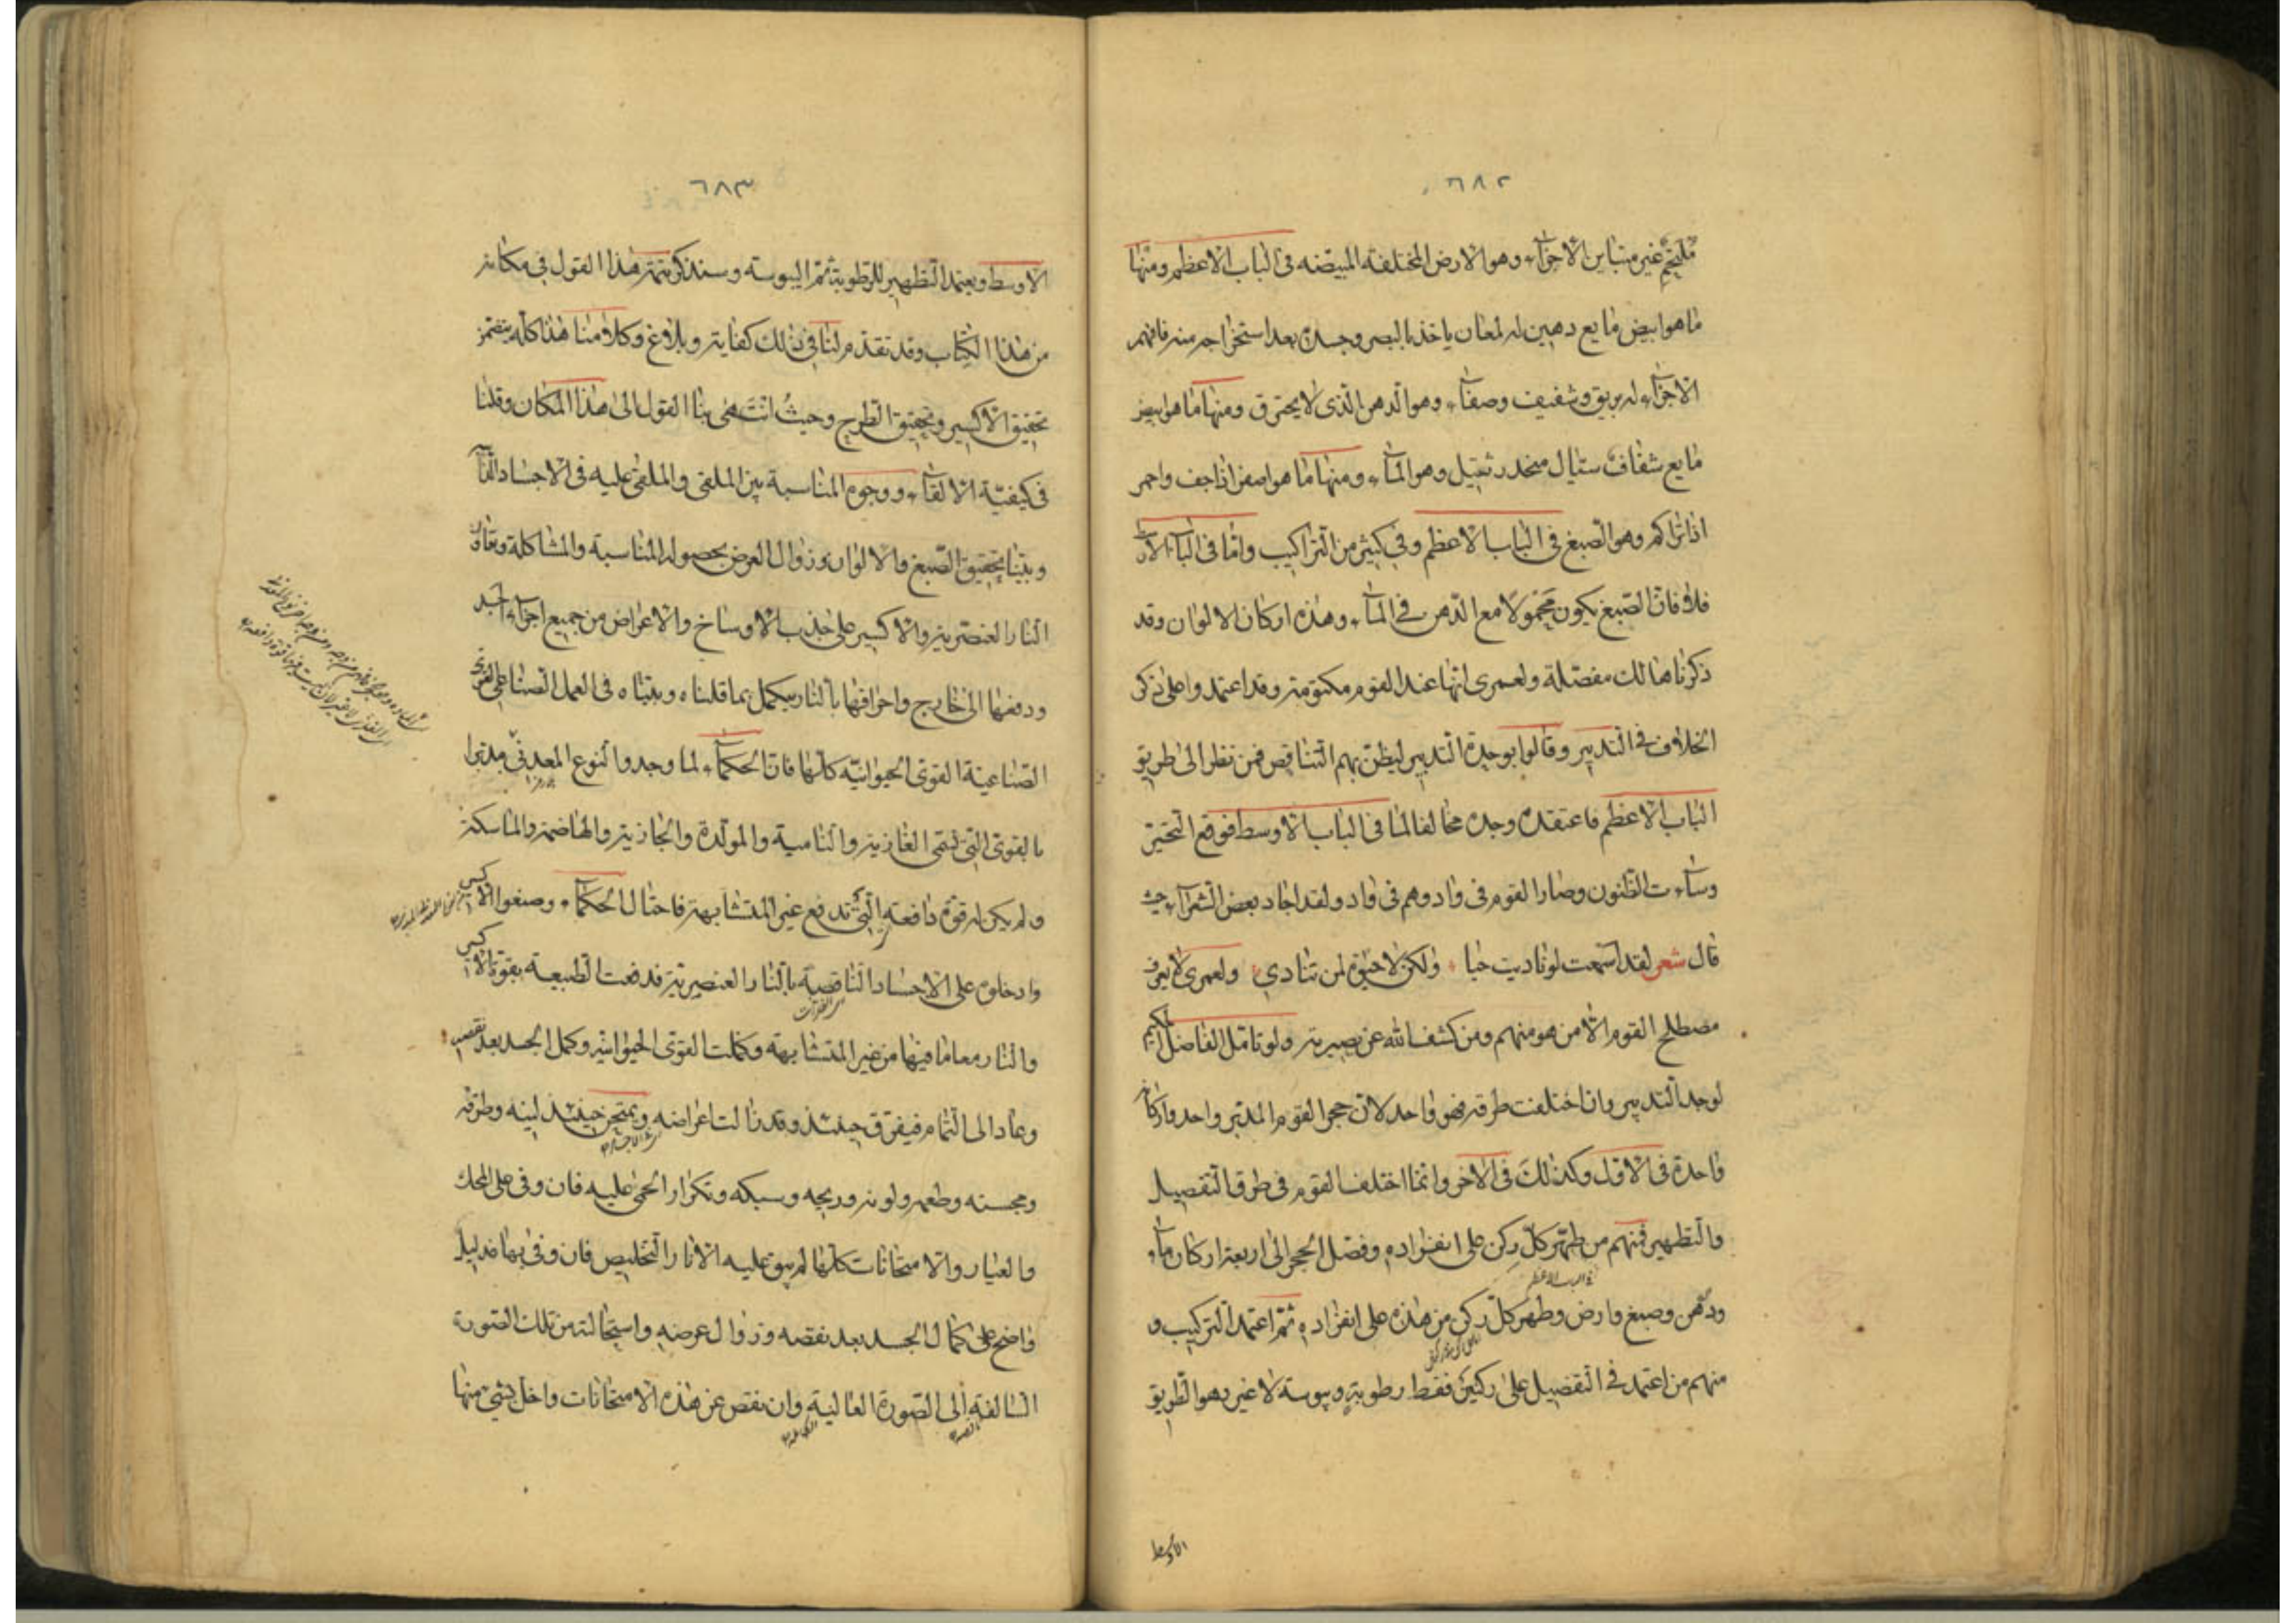 ٦٨٢
ملتحم غير متباين الاجزاء وهو الارض المختلفة المبيضه فى الباب الاعظم ومنها
ما هو ابيض مايع دهين له لمعان ياخذ بالبصر وجسده بعد استخراجه منه فافهم
الاجزاء له بريق وشفيف وصفاء وهو الدهن الذى لا يحترق ومنها ما هو ابيض
مايع شفاف سيال منحدر ثقيل وهو الماء ومنها ما هو اصفر اذا جف واحمر
اذا تراكم وهو الصبغ فى الباب الاعظم وفى كثير من التراكيب واما فى الباب
فلا فان الصبغ يكون محمولا مع الدهن فى الماء وهذه اركان الالوان وقد
ذكرناها لك مفصلة ولعمرى انها عند القوم مكتومة وقد اعتمدوا على ذكر
الخلاف فى التدبير وقالوا بوحدة التدبير ليظن بهم التناقض فمن نظر الى طريق
الباب الاعظم فاعتقده وجده مخالفا لما فى الباب الاوسط فوقع التحير
وساءت الظنون وصار القوم فى واد وهم فى واد ولقد اجاد بعض الشعراء حيث
قال شعر لقد اسمعت لو ناديت حيا ولكن لا حيوة لمن تنادي ولعمرى لا يعرف
مصطلح القوم الا من هو منهم ومن كشف الله عن بصيرته ولو تامل الفاضل الحكيم
لوجد التدبير وان اختلفت طرقه فهو واحد لان حجر القوم المدبر واحد واركانه
واحدة فى الاول وكذلك فى الاخر وانما اختلف القوم فى طرق التفصيل
والتطهير فمنهم من طهر كل ركن على انفراده وفصل الحجر الى اربعة اركان ماء و
فى الباب الاعظم
ودهن وصبغ وارض وطهر كل ركن من هذه على انفراده ثم اعتمد التركيب و
منهم من اعتمد فى التفصيل على ركنين فقط رطوبة ويبوسة لا غير وهو الطريق
الاوسط
٦٨٣
الاوسط ويعتمد التطهير للرطوبة ثم اليبوسة وسنذكر تتمة هذا القول فى مكانه
من هذا الكتاب وقد تقدم لنا فى ذلك كفاية وبلاغ وكلامنا هذا كله يتضمن
تحقيق الاكسير وتحقيق الطرح وحيث انتهى بنا القول الى هذا المكان وقلنا
فى كيفية الالقاء ووجوه المناسبة بين الملقى والملقى عليه فى الاجساد
وبينا تحقيق الصبغ والالوان وزوال العرض بحصول المناسبة والمشاكلة
النار العنصرية والاكسير على جذب الاوساخ والاعراض من جميع اجزاء الجسد
ودفعها الى خارج واحراقها بالنار يكمل بما قلناه وبيناه فى العمل الصناعى القوى
الصناعية القوى الحيوانية كلها فان الحكماء لما وجدوا النوع المعدنى مدبرا
بالقوى التى هى الغاذية والنامية والمولدة والجاذبة والهاضمة والماسكة
ولم يكن له قوة دافعة التى تدفع غير المتشابهة فاحتال الحكماء وصنعوا الاكسير
وادخلوه على الاجساد الناقصة بالنار العنصرية فدفعت الطبيعة بقوة الاكسير
والنار معا ما فيها من غير المتشابهة وكملت القوى الحيوانية وكمل الجسد بعد نقصه
وعاد الى التمام فيفرق حينئذ وقد زالت اعراضه ويمتحن حينئذ لينه وطرقه
ومجسته وطعمه ولونه وريحه وسبكه وتكرار الحمى عليه فان وفى على المحك
والعيار والامتحانات كلها لم يبق عليه الا نار التخليص فان وفى بها فدليل
واضح على كمال الجسد بعد نقصه وزوال عرضه واستحالته من تلك الصورة
السالفة الى الصورة العالية وان نقص عن هذه الامتحانات واخل بشىء منها